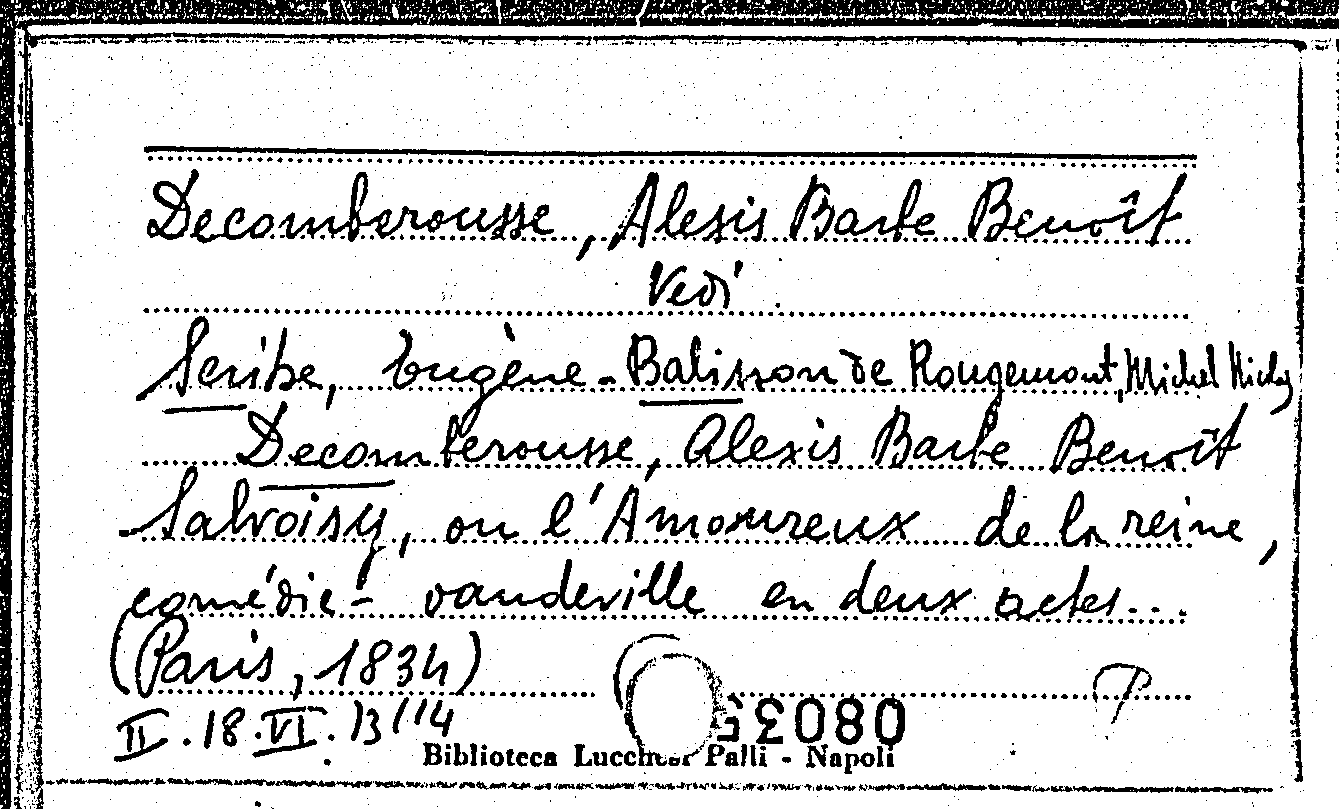 Decomberousse, Alexis Barbe Benoît
Vedi
Scribe, Eugène - Balisson de Rougemont, Michel Nicolas
Decomberousse, Alexis Barbe Benoît
Salvoisy, ou l'Amoureux de la reine,
comédie - vaudeville en deux actes...
(Paris, 1834)
II . 18 . VI . 13 (14
08035
Biblioteca Lucchesi Palli - Napoli